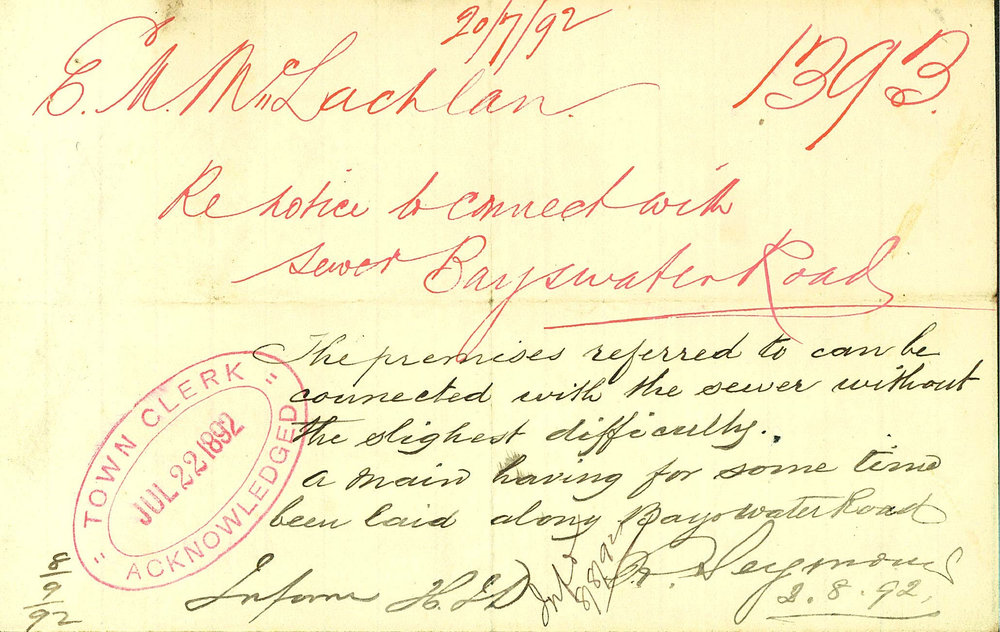 20/7/92
E. M. McLachlan.
1393.
Re notice to connect with
sewer Bayswater Road
The premises referred to can be
connected with the sewer without
the slighest difficulty.
a main having for some time
been laid along Bayswater Road
Seymour
2.8.92.
Inform H.
8/8/92
8/9/92
TOWN CLERK
JUL 22 1892
ACKNOWLEDGED